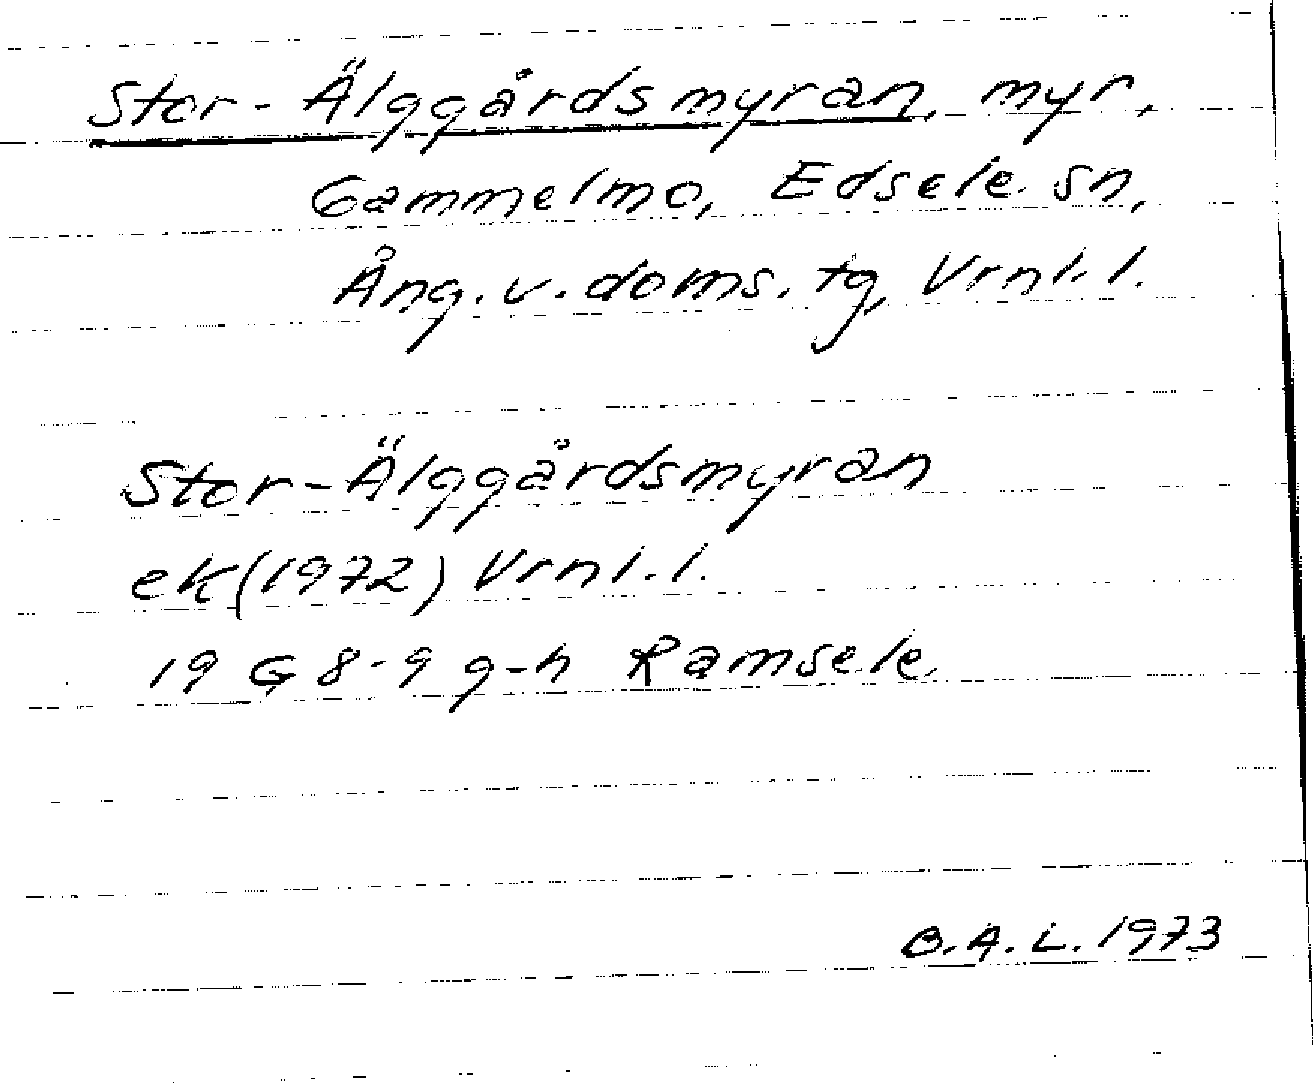 Stor-Älggårdsmyran, myr,
Gammelmo, Edsele sn,
Ång. v. doms. tg, Vrnl. l.
Stor-Älggårdsmyran
ek (1972) Vrnl. l.
19 G 8-9 g-h Ramsele.
B.A.L. 1973